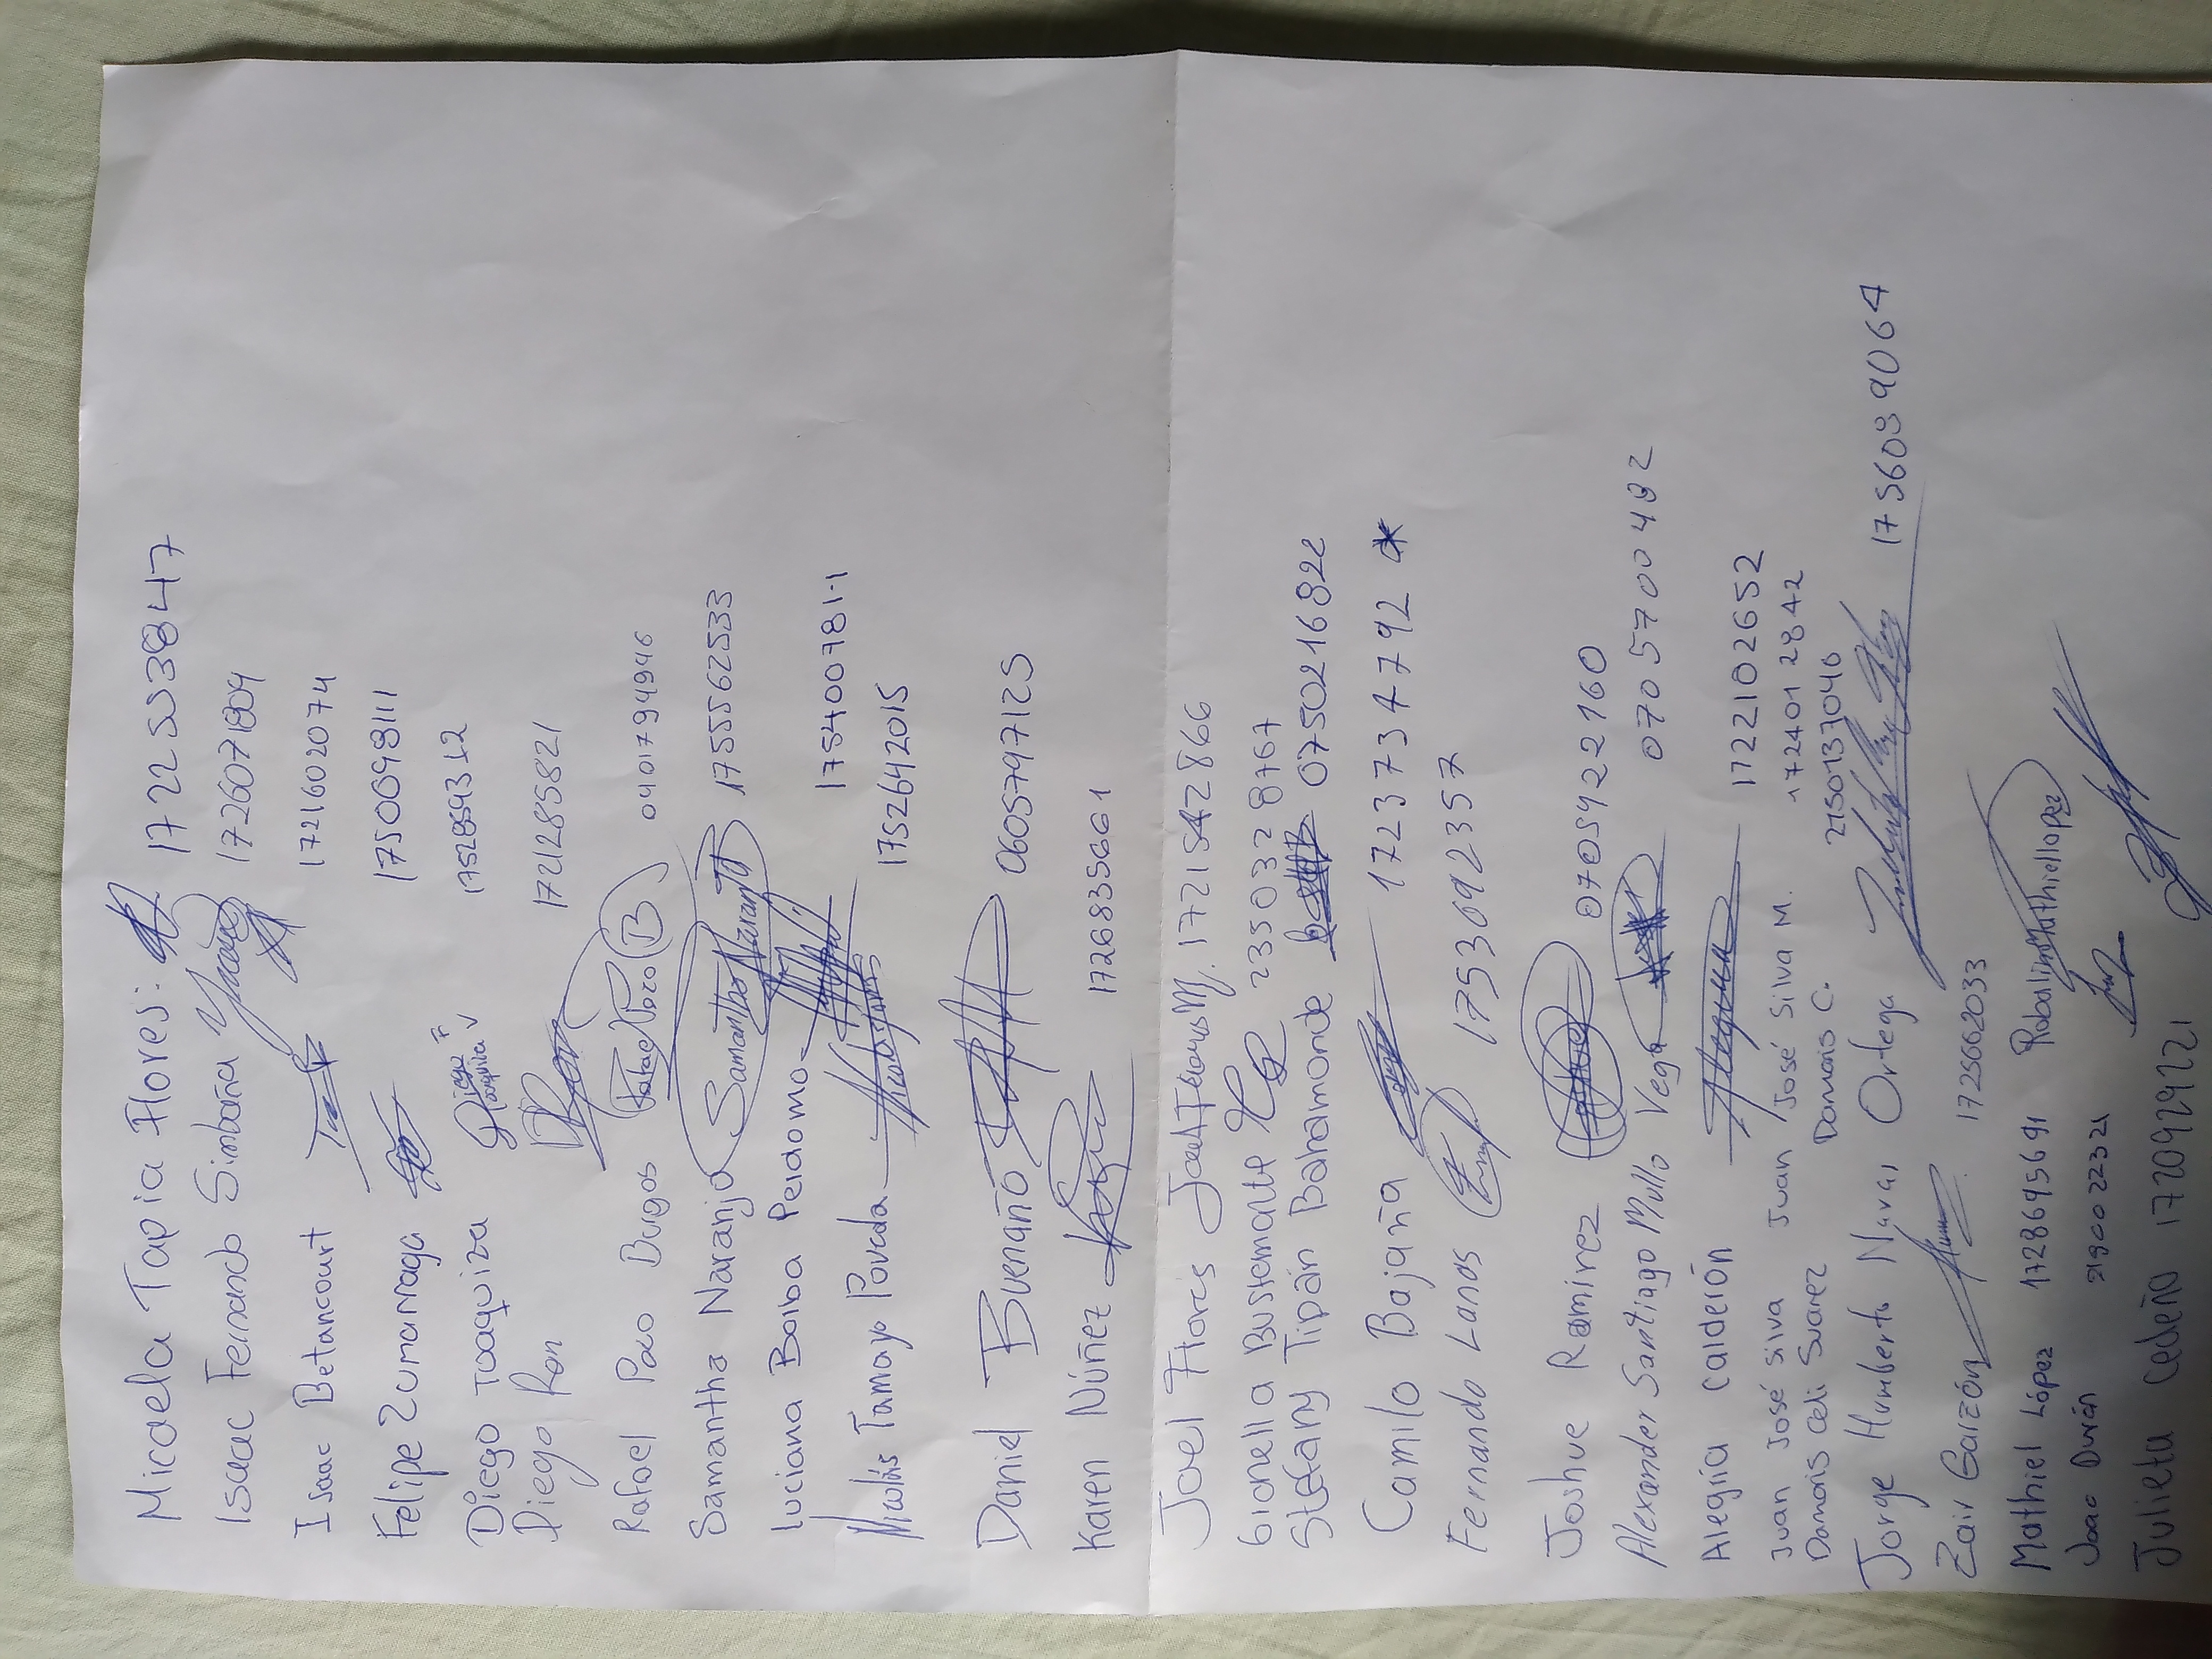 Micaela Tapia Flores: 1722553847
Isaac Fernando Simbaña 1726071809
Isaac Betancourt 1721602074
Felipe Zumarraga 1750698111
Diego Toaquiza Diego Toaquiza V
Diego Ron 1721285821
Rafael Pozo Burgos Rafael Pozo B 0401794946
Samantha Naranjo Samantha Naranjo 1755562533
Luciana Borba Perdomo 175400781-1
Nicolás Tamayo Poveda 1752642015
Daniel Buenaño 0605797125
Karen Núñez 1726835661
Joel Flores Joel Flores M. 1721542866
Gionella Bustamante 2350328767
Stefany Tipán Bahamonde 0750216822
Camilo Bajaña 1723734792
Fernando Lanas 1753092357
Joshue Ramirez 0705922160
Alexander Santiago Mullo Vega 0705700482
Alegría Calderón Alegria 1722102652
Juan José Silva Juan José Silva M. 1724012842
Damaris Celi Suarez Damaris C. 2150137046
Jorge Humberto Ortega 1756039064
Zair Garzón 1725662033
Mathiel López 1728695691
Joao Durán 2190022321
Julieta Cedeño 1720929221